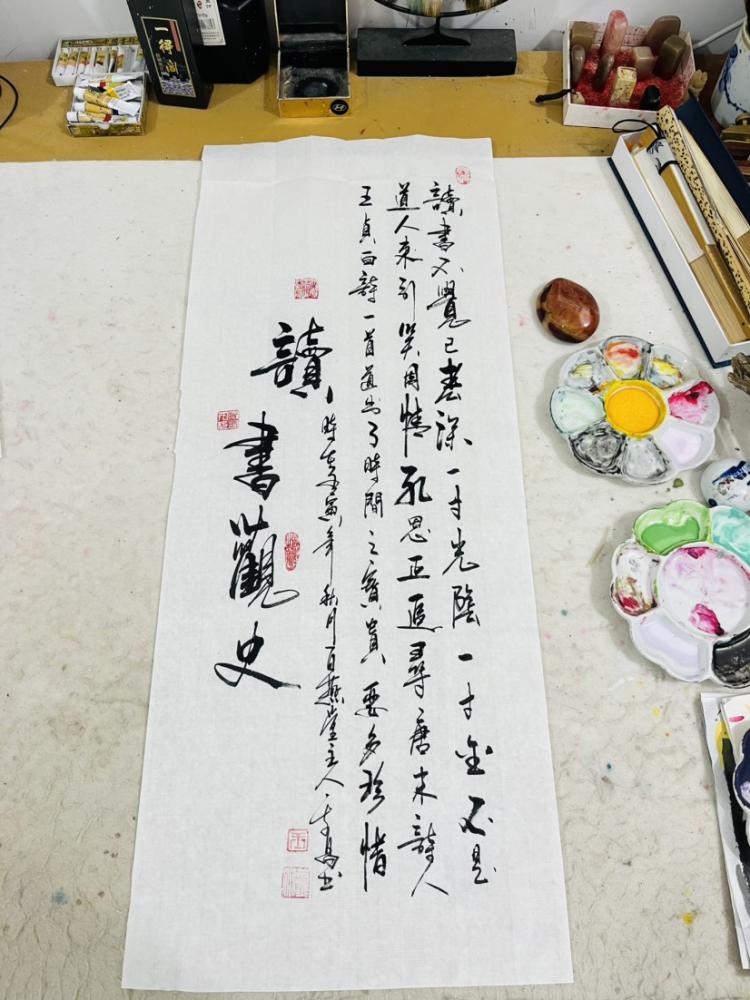 讀書不覺已春深一寸光陰一寸金不是
道人來引笑周情孔思正追尋唐末詩人
王貞百詩一首道出了時間之寶貴要多珍惜
讀書觀史
時在寅年秋月百燕堂主人書
一得阁